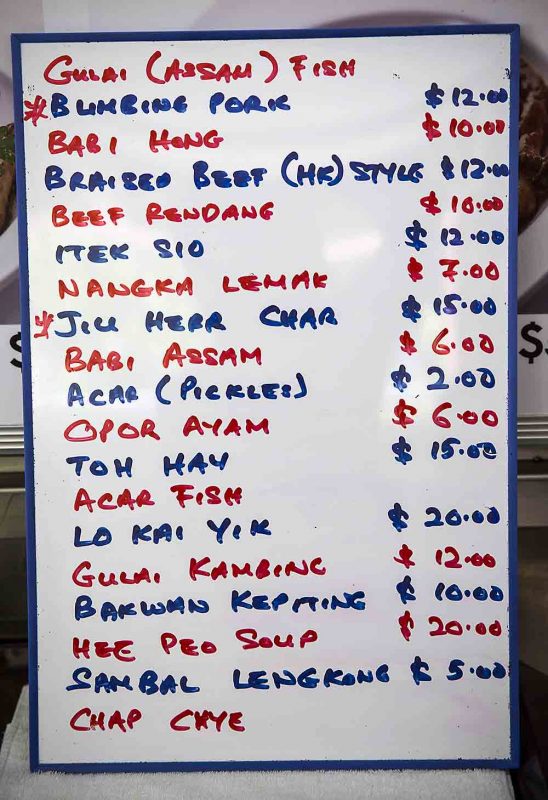 GULAI (ASSAM) FISH
* BLIMBING PORK $12.00
BABI HONG $10.00
BRAISED BEEF (HK) STYLE $12.00
BEEF RENDANG $10.00
ITEK SIO $12.00
NANGKA LEMAK $7.00
* JIU HERR CHAR $15.00
BABI ASSAM $6.00
ACAR (PICKLES) $2.00
OPOR AYAM $6.00
TOH HAY $15.00
ACAR FISH
LO KAI YIK $20.00
GULAI KAMBING $12.00
BAKWAN KEPITING $10.00
HEE PEO SOUP $20.00
SAMBAL LENGKONG $5.00
CHAP CHYE